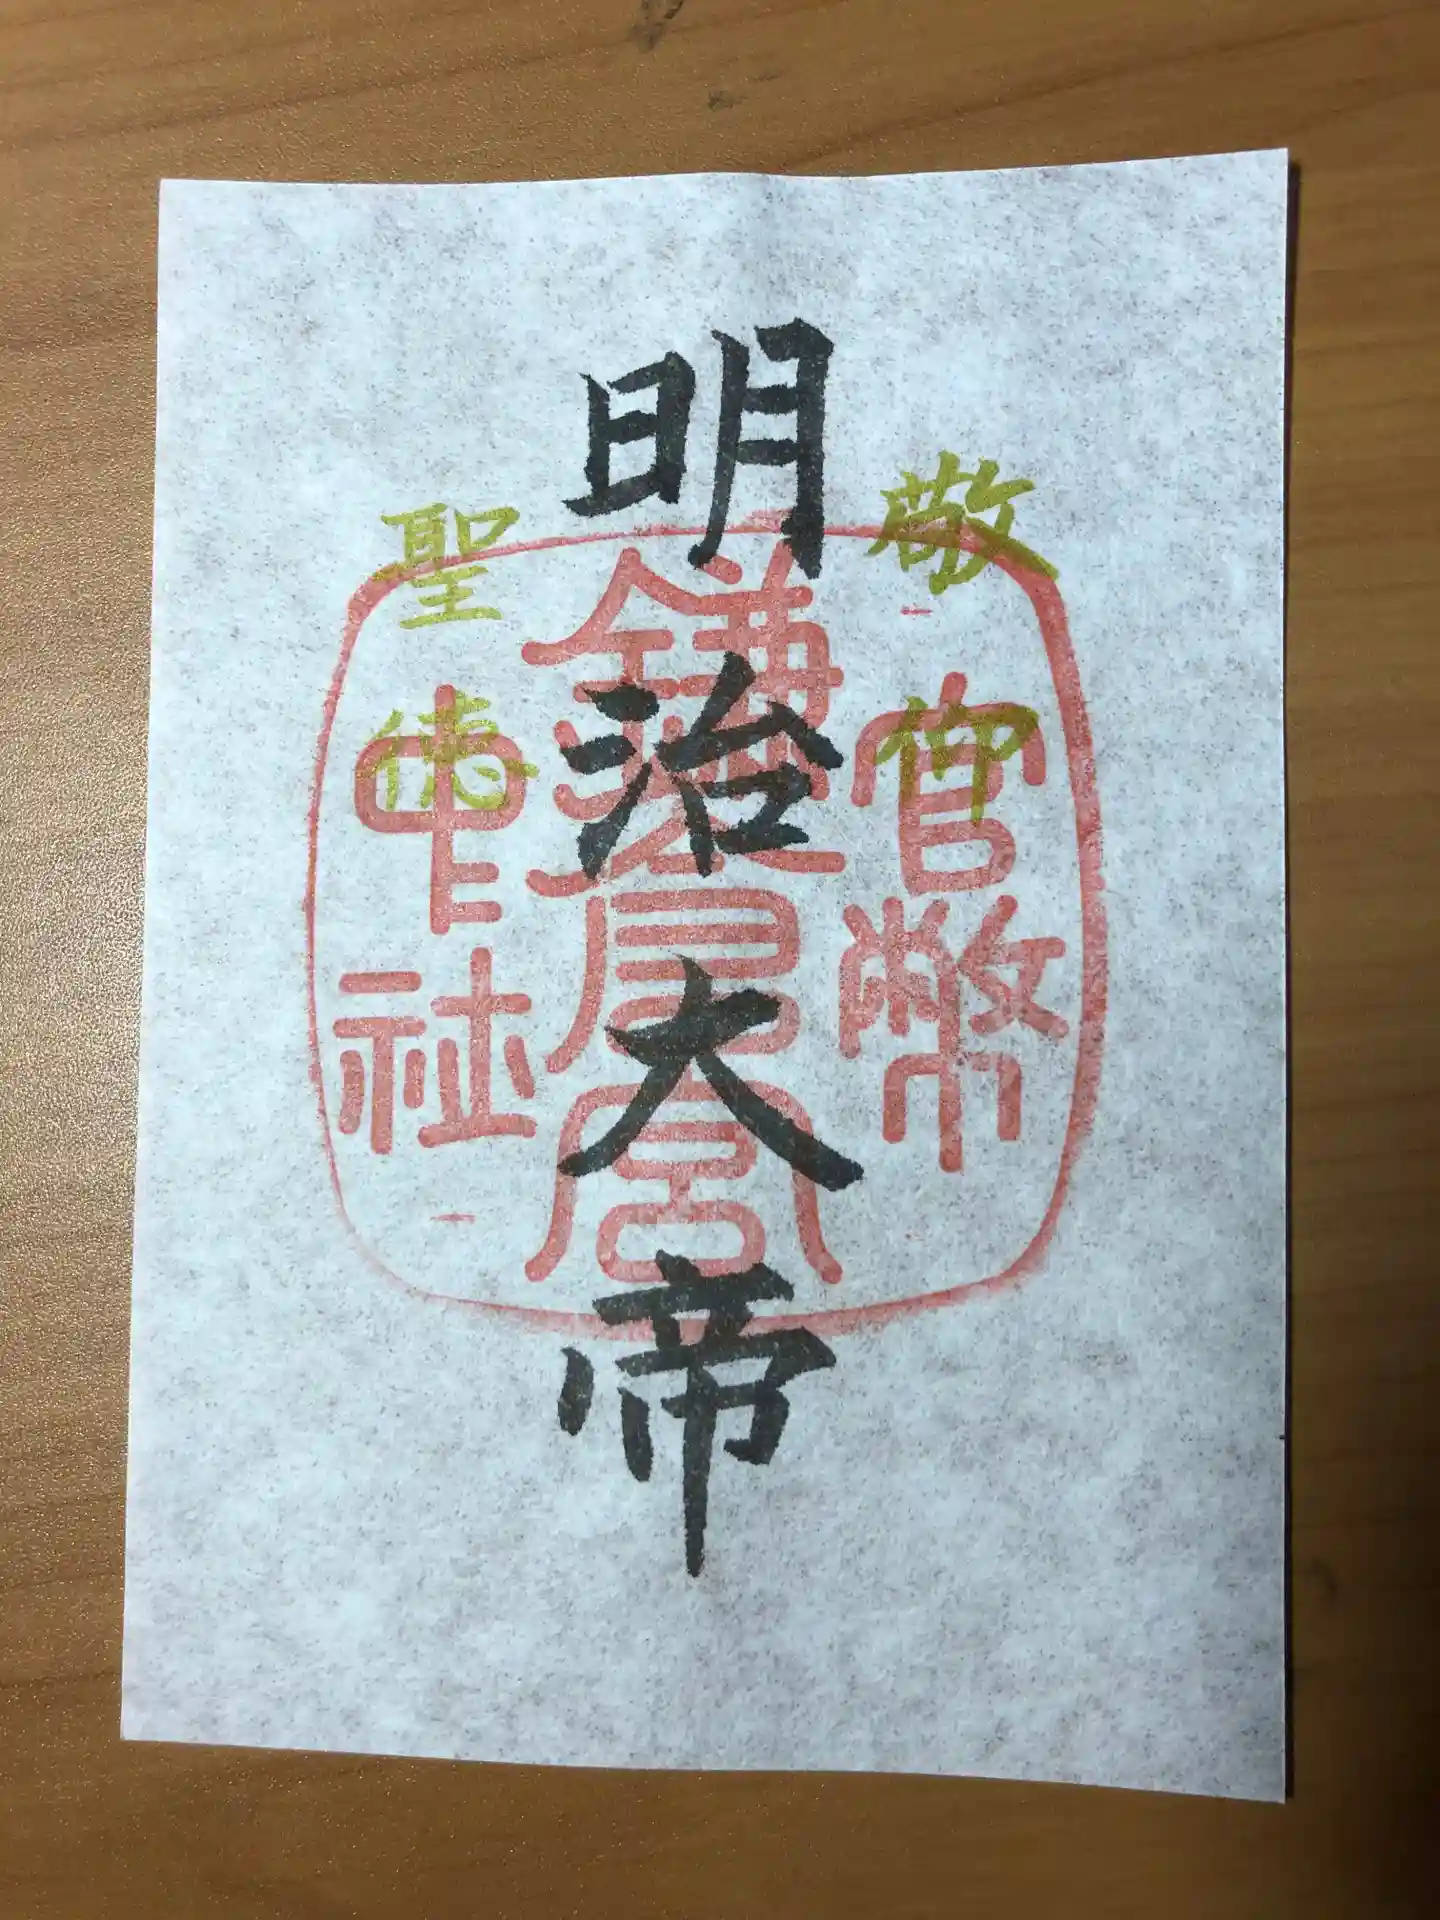 敬仰
明治大帝
聖徳
官幣
中社
鎌倉宮